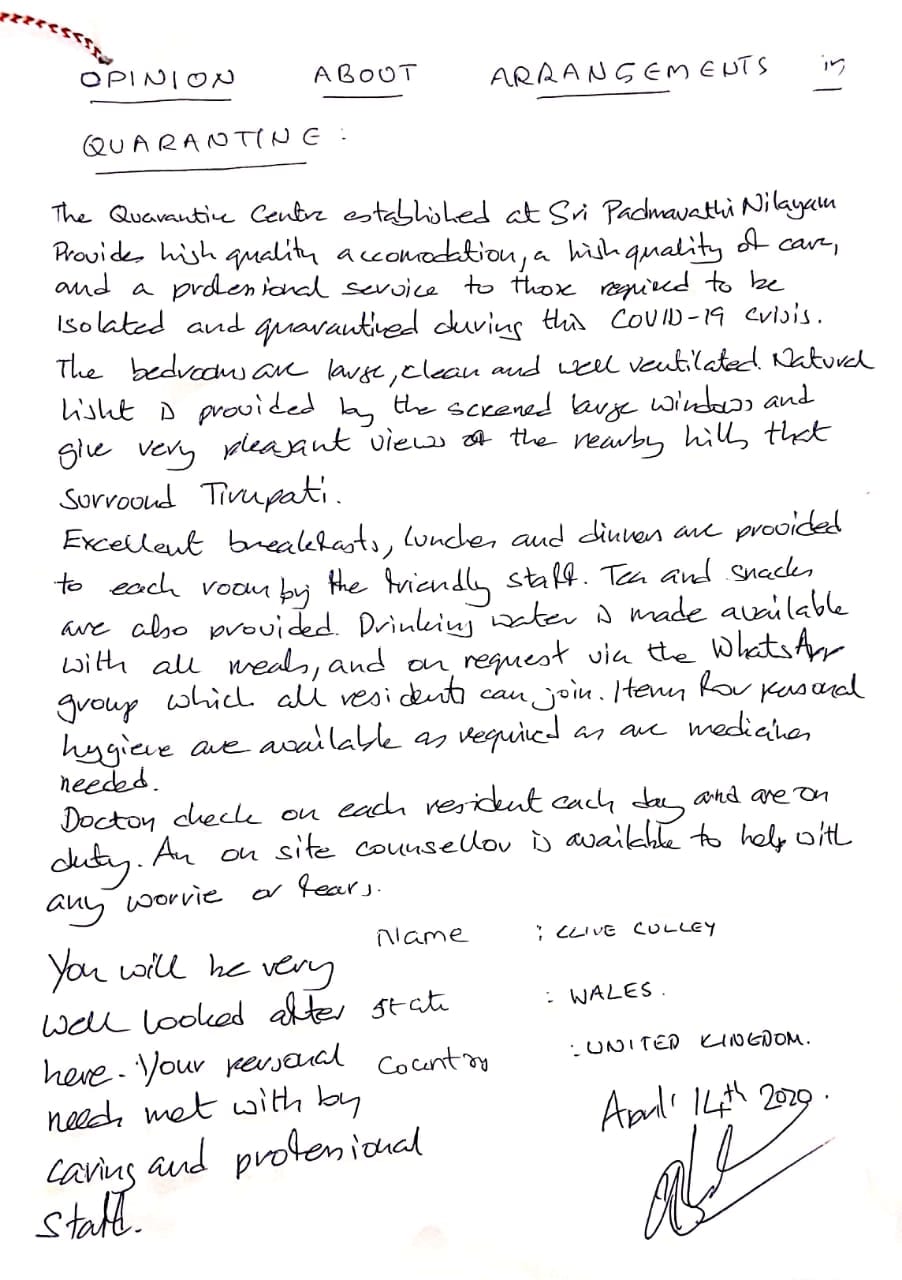 OPINION ABOUT ARRANGEMENTS in
QUARANTINE :
The Quarantine Centre established at Sri Padmavathi Nilayam
Provides high quality accomodation, a high quality of care,
and a professional service to those required to be
isolated and quarantined during this COVID-19 crisis.
The bedrooms are large, clean and well ventilated. Natural
light is provided by the screened large windows and
give very pleasant views of the nearby hills that
surround Tirupati.
Excellent breakfasts, lunches and dinners are provided
to each room by the friendly staff. Tea and snacks
are also provided. Drinking water is made available
with all meals, and on request via the WhatsApp
group which all residents can join. Items for personal
hygiene are available as required as are medicines
needed.
Doctors check on each resident each day and are on
duty. An on site counsellor is available to help with
any worrie or fears.
Name : CLIVE CULLEY
State : WALES.
Country : UNITED KINGDOM.
You will be very
well looked after
here. Your personal
needs met with by
caring and professional
staff.
April 14th 2020.